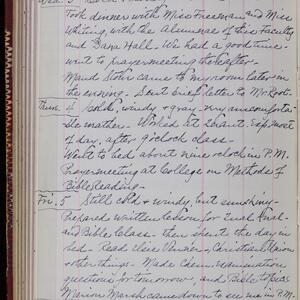 Took dinner with Miss Freeman and Miss
Whiting, with the Alumnae of this Faculty
and Dana Hall. We had a good time
went to prayer meeting thereafter.
Maud came to my room later in
the evening. Sent brief letter to Mr.
Thu. 4 Cold, windy & gray. very uncomforta-
ble weather. most
of day, after 9 o'clock class.
Went to bed about nine o'clock in P.M.
Prayer meeting at College on Methods of
Bible reading.
Fri. 5 Still cold & windy, but sunshiny.
Prepared written lesson for
and Bible Class. Then spent the day in
bed. Read Christian Union
& other things. Made Chem. examination
questions for tomorrow, and Bible topics
Marion Marsh came down to see me in P.M.